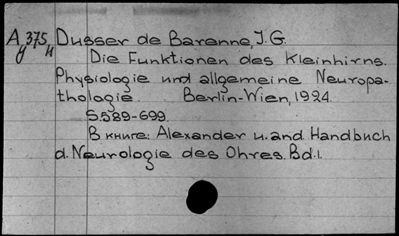 A 375 Dusser de Barenne, J.G.
y u
Die Funktionen des Kleinhirns.
Physiologie und allgemeine Neuropa-
thologie. Berlin-Wien, 1924.
S.589-699.
В книге: Alexander u. and Handbuch
d. Neurologie des Ohres. Bd.1.